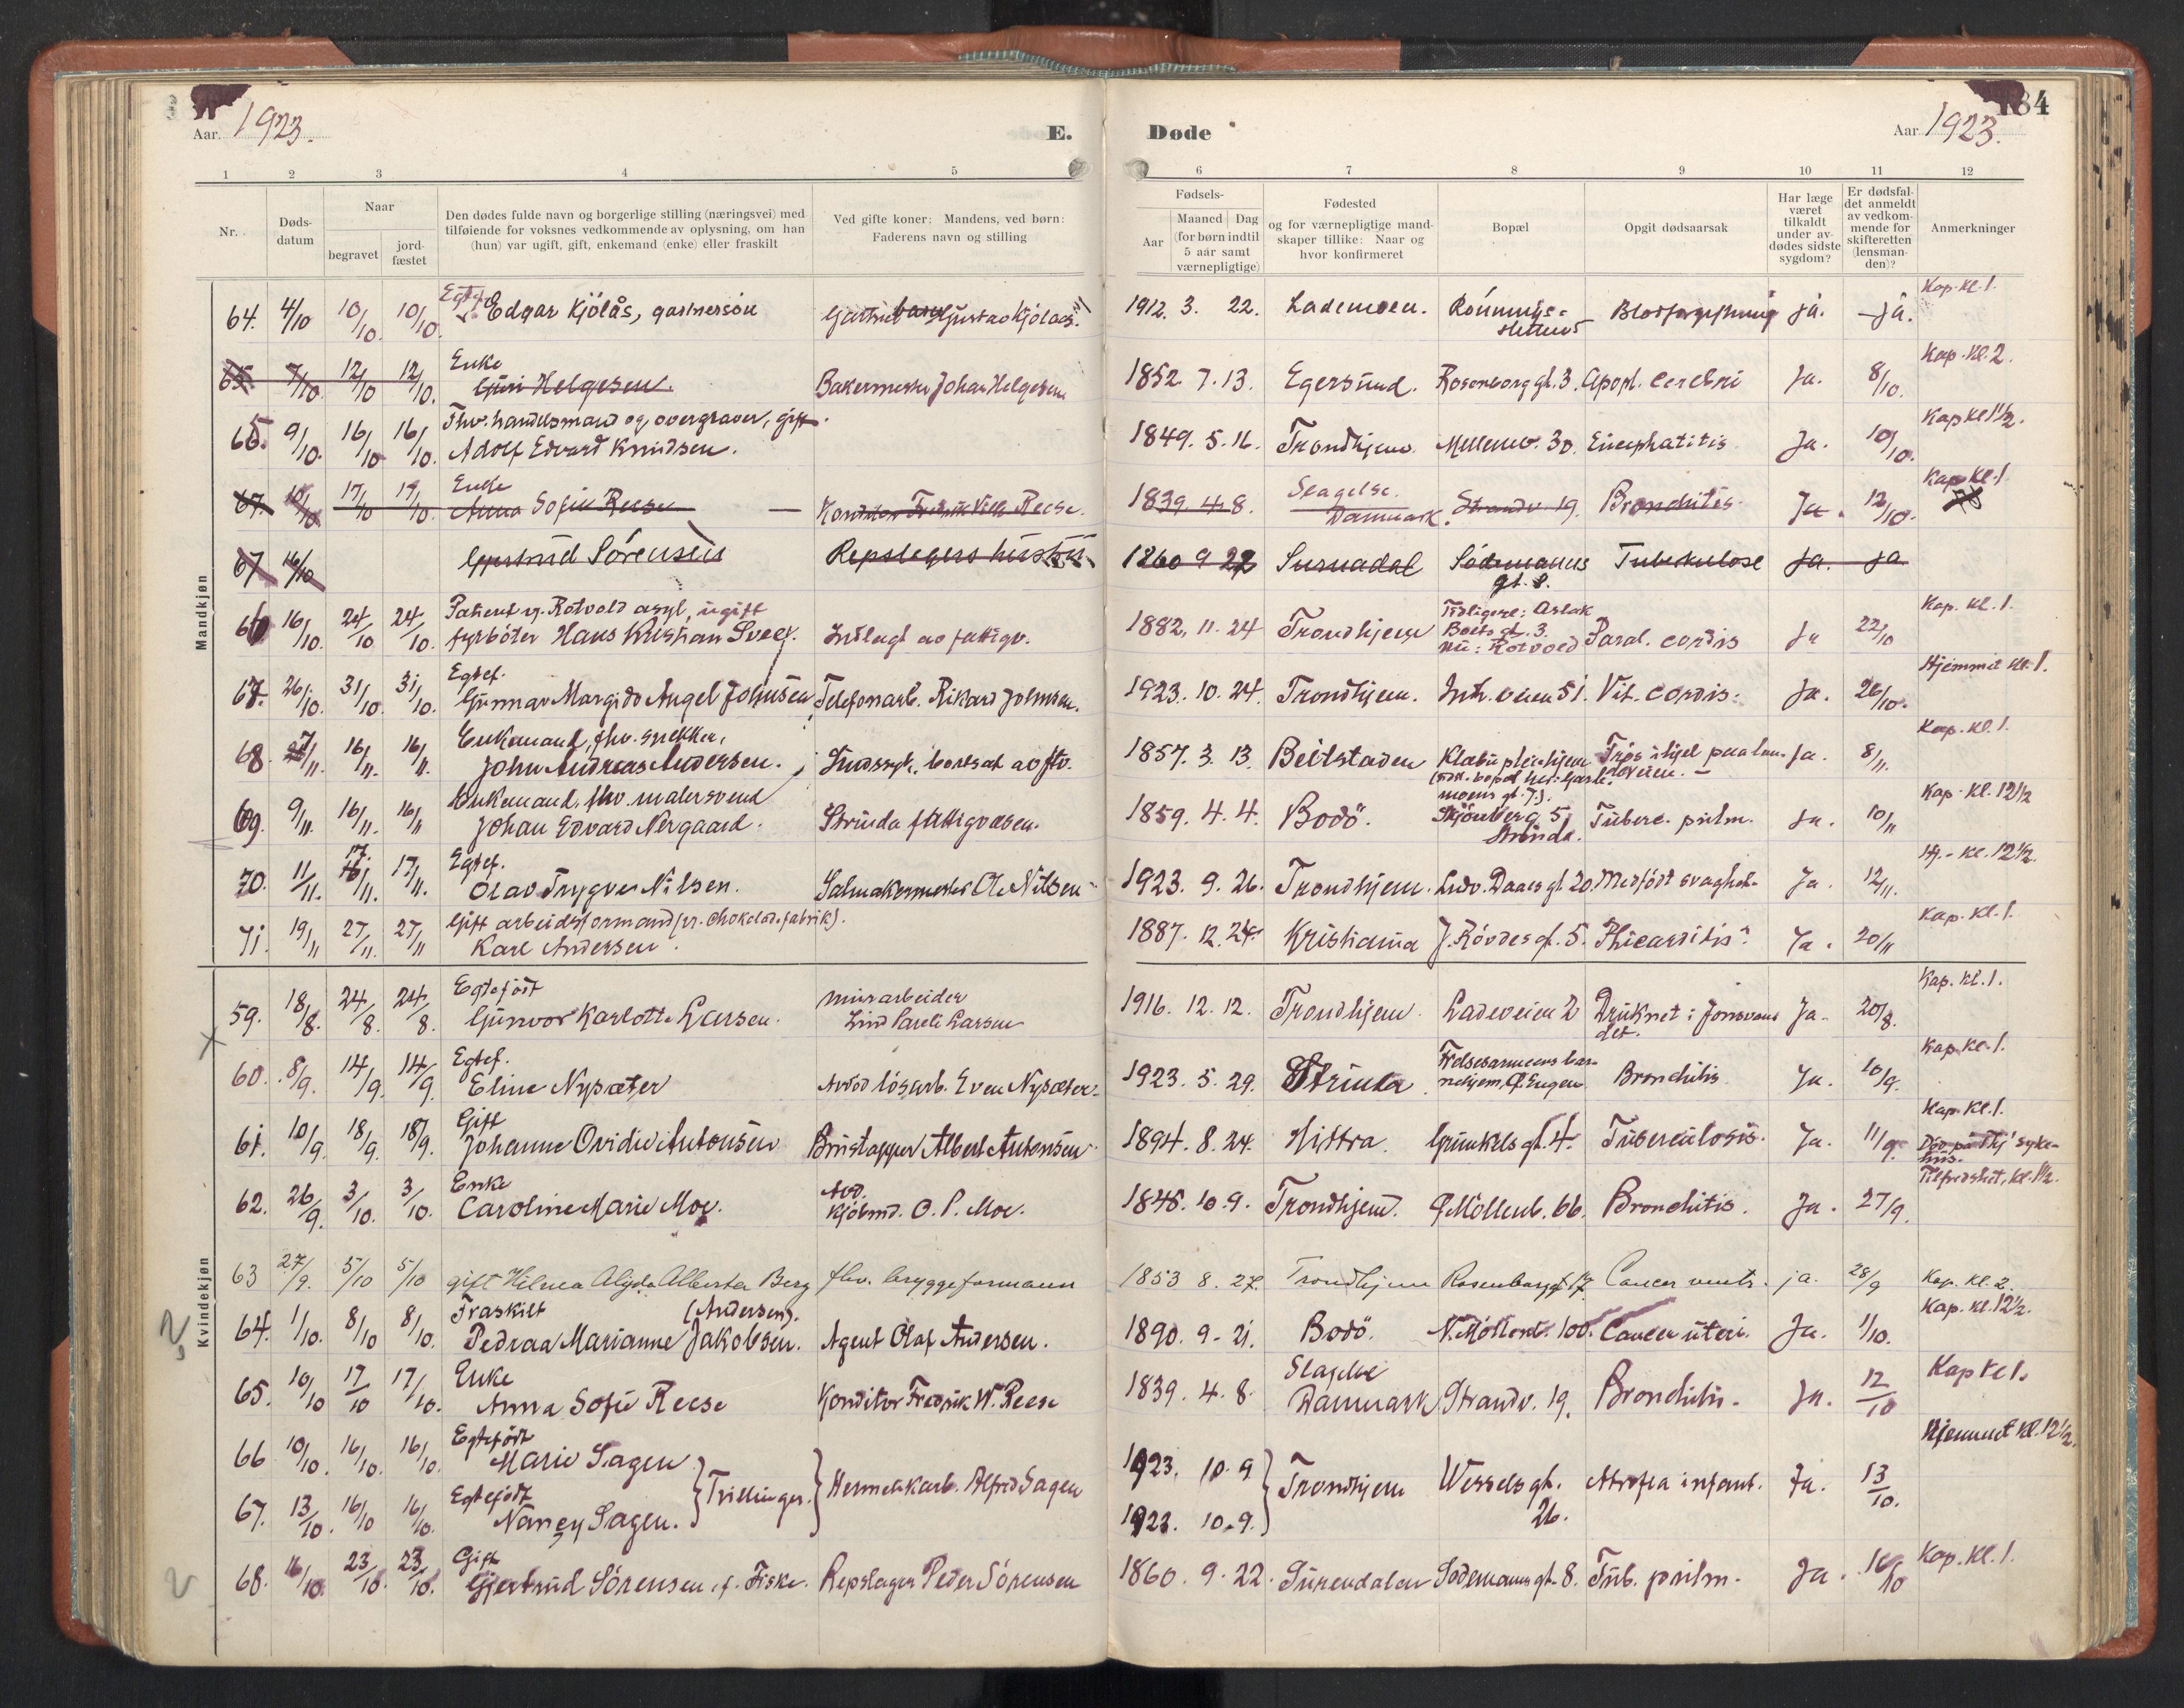 Aar 1923.
E.
Døde
Aar 1923.
84
1 2 3 4 5 6 7 8 9 10 11 12
Nr.
Døds-
datum
Naar
begravet
jord-
fæstet
Den dødes fulde navn og borgerlige stilling (næringsvei) med
tilføiende for voksnes vedkommende av oplysning, om han
(hun) var ugift, gift, enkemand (enke) eller fraskilt
Ved gifte koner: Mandens, ved børn:
Faderens navn og stilling
Fødsels-
Aar
Maaned Dag
(for børn indtil
5 aar samt
værnepligtige)
Fødested
og for værnepligtige mand-
skaper tillike: Naar og
hvor konfirmeret
Bopæl
Opgit dødsaarsak
Har læge
været
tilkaldt
under av-
dødes sidste
sygdom?
Er dødsfal-
det anmeldt
av vedkom-
mende for
skifteretten
(lensman-
den)?
Anmerkninger
Mandkjøn
Kap. kl. 1.
64. 4/10 10/10. 10/10. Edgar Kjölås, gartnersön Gustav Kjölaas. 1912. 3. 22. Lademoen. Blodforgiftning ja. ja.
Enke Kap. kl. 2.
65. 7/10. 12/10 12/10. Guri Helgesen. Bakermester Johan Helgesen 1852. 7. 13. Egersund. Rosenborg gt. 3. Apopl. cerebri Ja. 8/10.
Fhv. handelsmand og overgraver, gift. Kap kl 1 1/2.
65. 9/10. 16/10 16/10. Adolf Edvard Knudsen. 1849. 5. 16. Trondhjem. Mellemv. 30. Ja. 10/10.
Enke Slagelse. Kap kl. 1
67. 10/10 17/10 17/10. Anna Sofie Reese Konditor Fredrik Vilh. Reese. 1839. 4. 8. Danmark. Strandv. 19. Bronchites Ja. 12/10.
67 16/10 Gjertrud Sörensen Repslagers hustru 1860 9 22 Surnadal Södemanns Tuberkulose Ja. ja
gt. 8.
Patient v. Rotvold asyl, ugift Tidligere: Aslak Kap. kl. 1.
66 16/10. 24/10 24/10. fyrböter Hans Kristian Sveej. Indlagt av fattigv. 1882. 11. 24 Trondhjem Bolts gt. 3. Paral. cordis Ja 22/10
nu: Rotvold
Egtef. Hjemmet kl. 1.
67. 26/10. 31/10. 31/10. Gunnar Margido Angel Johnsen, Telefonarb. Rikard Johnsen. 1923. 10. 24. Trondhjem. Inh. veien 51. Vit. cordis. Ja. 26/10.
Enkemand, fhv. snekker, Kap. kl. 1.
68. 7/11. 16/11. 16/11. John Andreas Andersen. Sindssyk, bortsat av ftv. 1857. 3. 13. Beitstaden Klæbu pleiehjem Ja. 8/11.
Enkemand, fhv. malersvend Kap. kl. 12 1/2
69. 9/11. 16/11. 16/11 Johan Edvard Nergaard. Strinda fattigvæsen. 1859. 4. 4. Bodö. Skjönberg 5, Tuberc. pulm. Ja. 10/11
Strinda.
Egtef. Hj. - kl. 12 1/2.
70. 11/11. 17./11. 17/11. Olav Trygve Nilsen. Salmakermester Ole Nilsen 1923. 9. 26. Trondhjem. Ludv. Daaes gt. 20. Medfödt svaghet. Ja. 12/11.
Gift arbeidsformand (pr. chokoladefabrik). Kap. kl. 1.
71. 19/11 27/11. 27/11 Karl Andersen. 1887. 12. 24. Kristiania J. Rövdes gt. 5. Ja. 20/11
Kvindekjøn
Egtefödt murarbeider Kap. kl. 1.
59. 18/8. 24/8. 24/8. Gunvor Karlotte Larsen. Larsen 1916. 12. 12. Trondhjem. Ladeveien 2 Druknet i Jonsvand Ja. 20/8.
det.
Egtef. Frelsesarmeens bar- Kap kl. 1.
60. 8/9. 14/9. 14/9. Eline Nysæter Avdöd lösarb. Even Nysæter. 1923. 5. 29. Strinda. nehjem, Bronchitis Ja. 10/9.
Gift Kap. kl. 1.
61. 10/9. 18/9. 18/9. Johanne Ovidie Antonsen Albert Antonsen 1894. 8. 24. Hittra. Gunkels gt. 4. Tuberculosis. Ja. 11/9. Död på Thj syke-
hus.
Enke Avd. Tilfredshet, kl. 1 1/2.
62. 26/9. 3/10. 3/10. Caroline Marie Moe. Kjöbmd. O. P. Moe. 1845. 10. 9. Trondhjem. Ö. Möllenb. 66. Bronchitis. Ja. 27/9.
63 27/9. 5/10 5/10 gift Hilma Alida Alberta Berg fhv. bryggeformann 1853 8. 27. Trondhjem Rosenborggt 17 Cancer ventr. ja. 28/9 Kap. kl. 2.
Fraskilt (Andersen). Kap. kl. 12 1/2.
64. 1/10. 8/10 8/10. Pedraa Marianne Jakobsen. Agent Olaf Andersen. 1890. 9. 21. Bodö. N. Möllenb. 100. Cancer uteri. Ja. 1/10.
Enke Slagelse Kap kl 1.
65. 10/10 17/10 17/10. Anna Sofie Reese Konditor Fredrik W. Reese 1839. 4. 8. Danmark Strandv. 19. Bronchitis. Ja. 12/10
Egtefödt Hjemmet kl. 12 1/2.
66 10/10. 16/10. 16/10. Marie Sagen Trillinger. Hermetikarb. Alfred Sagen 1923. 10. 9. Trondhjem Wessels gt. Atrofia infant. Ja. 13/10.
Egtefödt 26.
67. 13/10. 16/10 16/10. Nancy Sagen. 1923. 10. 9.
Gift Kap. kl. 1.
68. 16/10. 23/10. 23/10. Gjertrud Sörensen, f. Fiske. Repslager Peder Sörensen 1860. 9. 22. Surendalen Sodemanns gt. 8. Tub. pulm. Ja. 16/10